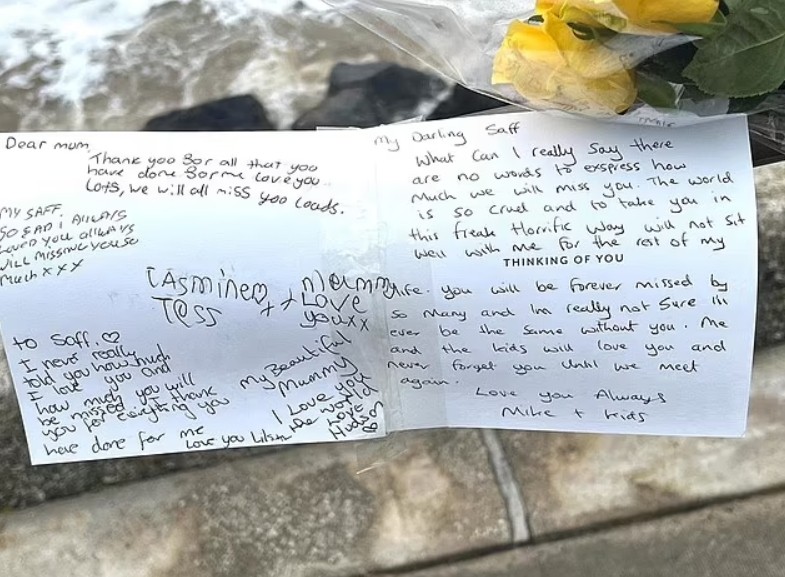 Dear mum
Thank you for all that you
have done for me love you
Lots, we will all miss you loads.
MY SAFF.
SO SAD I ALWAYS
LOVED YOU ALWAYS
WILL MISS YOU SO
MUCH x x x
Jasmine
Tess
x x
Mummy
Love
you xx
to Saff. ♡
I never really
told you how much
I love you and
how much you will
be missed but thank
you for everything you
have done for me
Love you
My Beautiful
Mummy
I Love you
the world
Love
Hudson
My Darling Saff
What Can I really Say there
are no words to exspress how
Much we will miss you. The world
is so cruel and to take you in
this freak Horrific Way will not sit
well with me for the rest of my
THINKING OF YOU
life. you will be forever missed by
so Many and Im really not Sure Ill
ever be the same without you. Me
and the kids will love you and
never forget you Until we meet
again.
Love you Always
Mike + kids